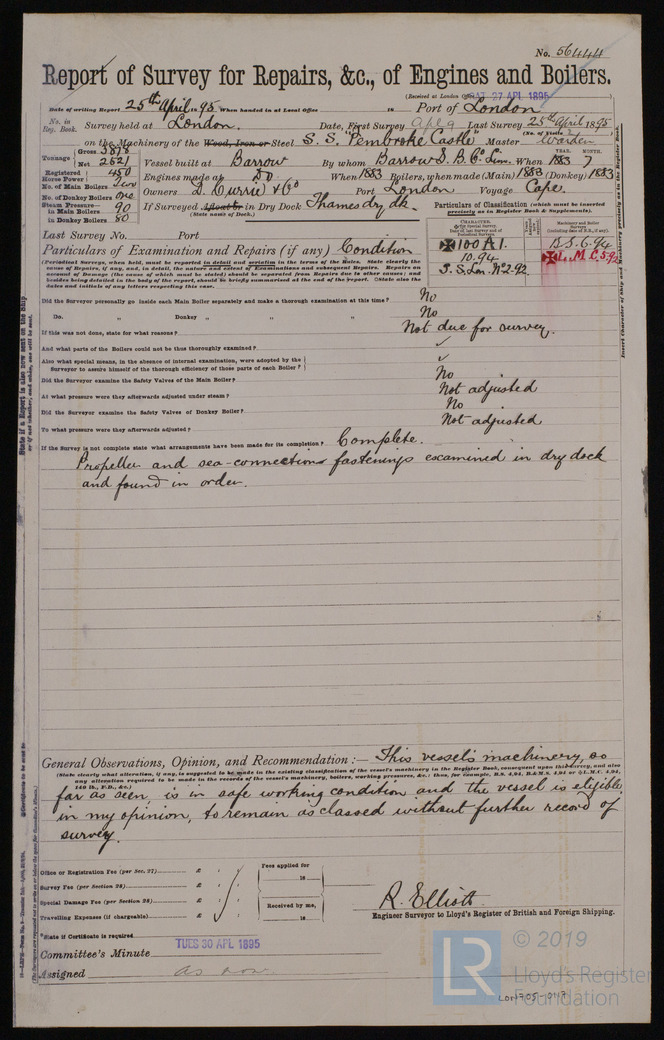 No. 56444
Report of Survey for Repairs, &c., of Engines and Boilers.
(Received at London Office SAT 27 APL 1895
Date of writing Report 25th April 1895 When handed in at Local Office 18 Port of London
No. in Reg. Book. Survey held at London. Date, First Survey Last Survey 25th April 1895
(No. of Visits )
on the Machinery of the Wood, Iron or Steel S. S. "Pembroke Castle" Master Warden
Tonnage Gross 3873 Net 2521 Vessel built at Barrow By whom Barrow S. B. Co Lim. When 1883 YEAR. MONTH. 7
Registered Horse Power 450 Engines made at Do. When 1883 Boilers, when made (Main) 1883 (Donkey) 1883
No. of Main Boilers Two
No. of Donkey Boilers One Owners D. Currie & Co Port London Voyage Cape.
Steam Pressure in Main Boilers 90 If Surveyed Afloat or in Dry Dock Thames dry dk.
in Donkey Boilers 80 (State name of Dock.)
Particulars of Classification (which must be inserted precisely as in Register Book & Supplements).
Last Survey No. Port
CHARACTER. Machinery and Boiler Surveys
✠100 A1. B.S. 6.94
10.94 ✠L.M.C. 5.92
S.S. Lon. No2.92
Particulars of Examination and Repairs (if any) Condition
(Periodical Surveys, when held, must be reported in detail and seriatim in the terms of the Rules. State clearly the
cause of Repairs, if any, and, in detail, the nature and extent of Examinations and subsequent Repairs. Repairs on
account of Damage (the cause of which must be stated) should be separated from Repairs due to other causes; and
besides being detailed in the body of the report, should be briefly summarised at the end of the report. State also the
dates and initials of any letters respecting this case.
Did the Surveyor personally go inside each Main Boiler separately and make a thorough examination at this time? No
Do. " Donkey " " " No
If this was not done, state for what reasons? Not due for survey.
And what parts of the Boilers could not be thus thoroughly examined? ✓
Also what special means, in the absence of internal examination, were adopted by the
Surveyor to assure himself of the thorough efficiency of those parts of each Boiler? ✓
Did the Surveyor examine the Safety Valves of the Main Boiler? No
At what pressure were they afterwards adjusted under steam? Not adjusted
Did the Surveyor examine the Safety Valves of Donkey Boiler? No
To what pressure were they afterwards adjusted? Not adjusted
If the Survey is not complete state what arrangements have been made for its completion? Complete.
Propeller and sea-connections fastenings examined in dry dock
and found in order.
General Observations, Opinion, and Recommendation :— This vessel's machinery, so
(State clearly what alteration, if any, is suggested to be made in the existing classification of the vessel's machinery in the Register Book, consequent upon this survey, and also
any alteration required to be made in the records of the vessel's machinery, boilers, working pressures, &c.; thus, for example, B.S. 4,94, B.&M.S. 4,94 or L.M.C. 4,94,
140 lb., F.D., &c.)
far as seen, is in safe working condition and the vessel is eligible,
in my opinion, to remain as classed without further record of
survey.
Office or Registration Fee (per Sec. 27) £ : : Fees applied for
Survey Fee (per Section 28) £ : : 18
Special Damage Fee (per Section 28) £ : : Received by me,
Travelling Expenses (if chargeable) £ : : 18
R. Elliott
Engineer Surveyor to Lloyd's Register of British and Foreign Shipping.
*State if Certificate is required
Committee's Minute TUES 30 APL 1895
Assigned as now
LR © 2019
Lloyd's Register
Foundation
LON705-0117